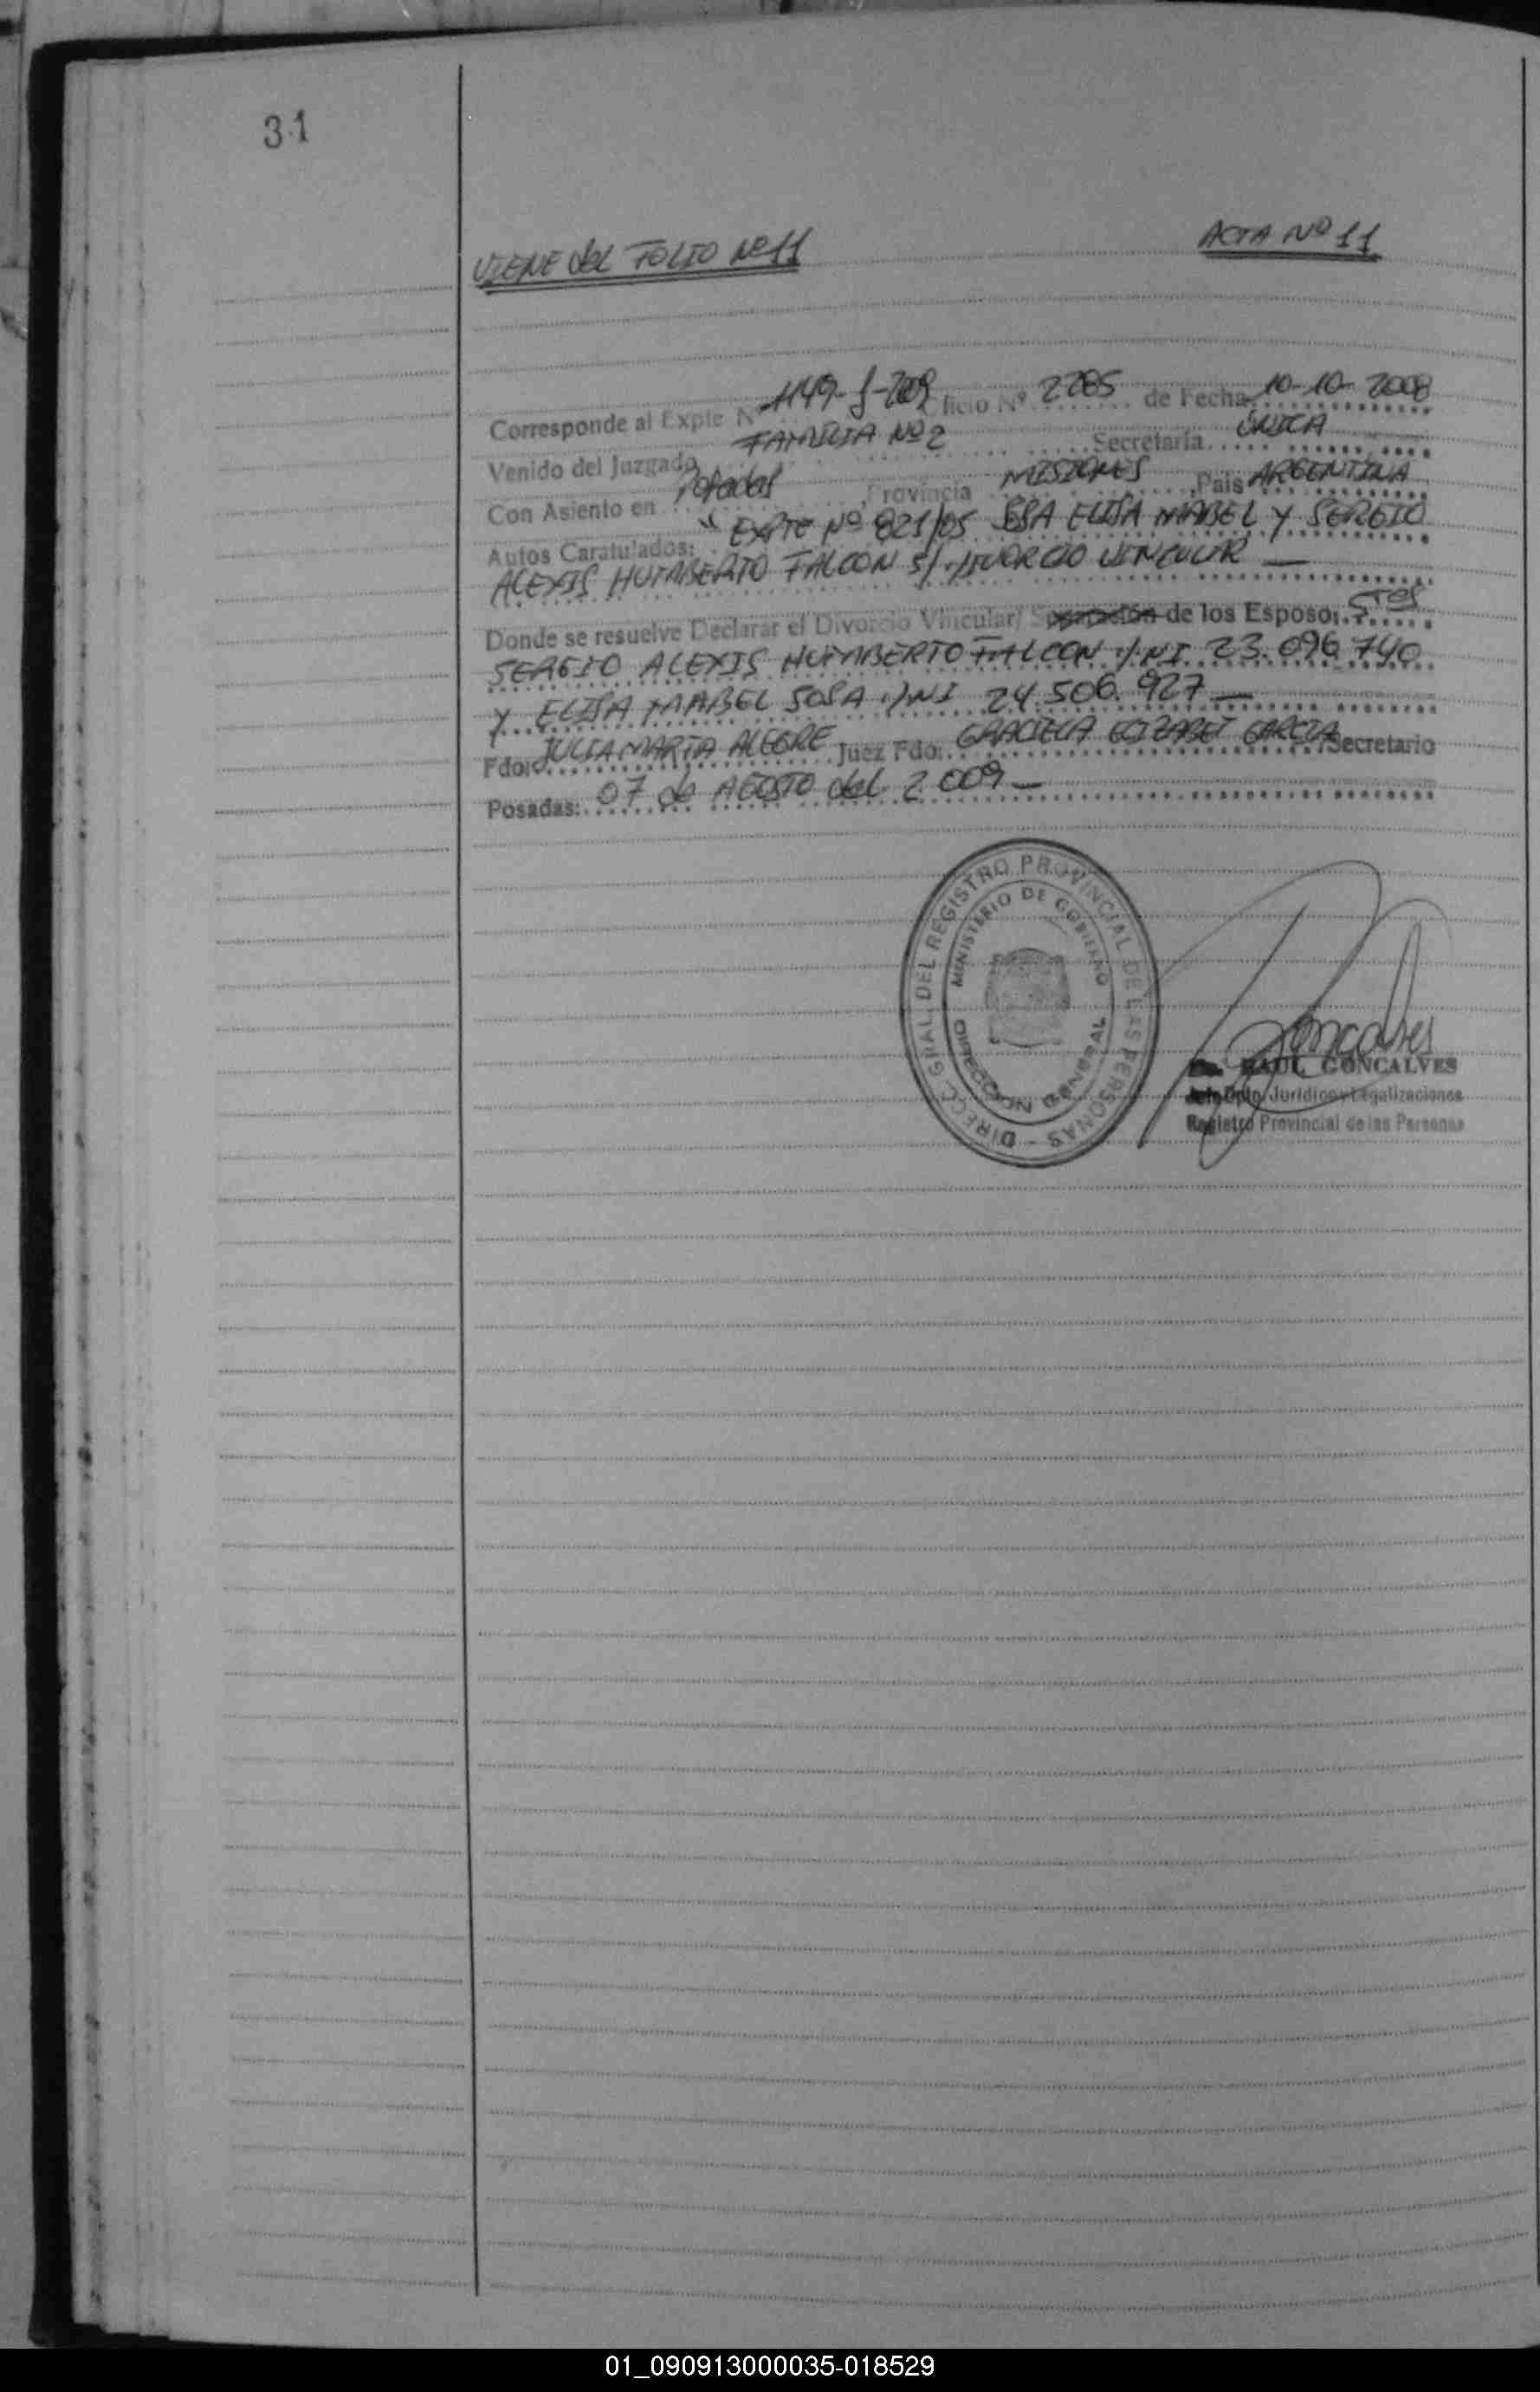 31
VIENE del FOLIO Nº 11
ACTA Nº 11
Corresponde al Expte Nº 1149-J-2009 Oficio Nº 2285 de Fecha 10-10-2008
Venido del Juzgado FAMILIA Nº 2 Secretaría ÚNICA
Con Asiento en Posadas, Provincia MISIONES, País ARGENTINA
Autos Caratulados: " EXPTE Nº 821/05 SOSA ELISA MABEL Y SERGIO
ALEXIS HUMBERTO FALCON S/ DIVORCIO VINCULAR —
Donde se resuelve Declarar el Divorcio Vincular/ Separación de los Esposos: Sres
SERGIO ALEXIS HUMBERTO FALCON DNI 23.096.740
Y ELISA MABEL SOSA DNI 24.506.927 —
Fdo: JULIA MARTA ALEGRE Juez Fdo: GRACIELA ELIZABET GARCIA Secretario
Posadas: 07 de AGOSTO del 2.009 —
DIREC. GRAL. DEL REGISTRO PROVINCIAL DE LAS PERSONAS -
MINISTERIO DE GOBIERNO
DIRECCION GENERAL
Goncalves
RAUL GONCALVES
Jefe Dpto. Jurídico y Legalizaciones
Registro Provincial de las Personas
01_090913000035-018529